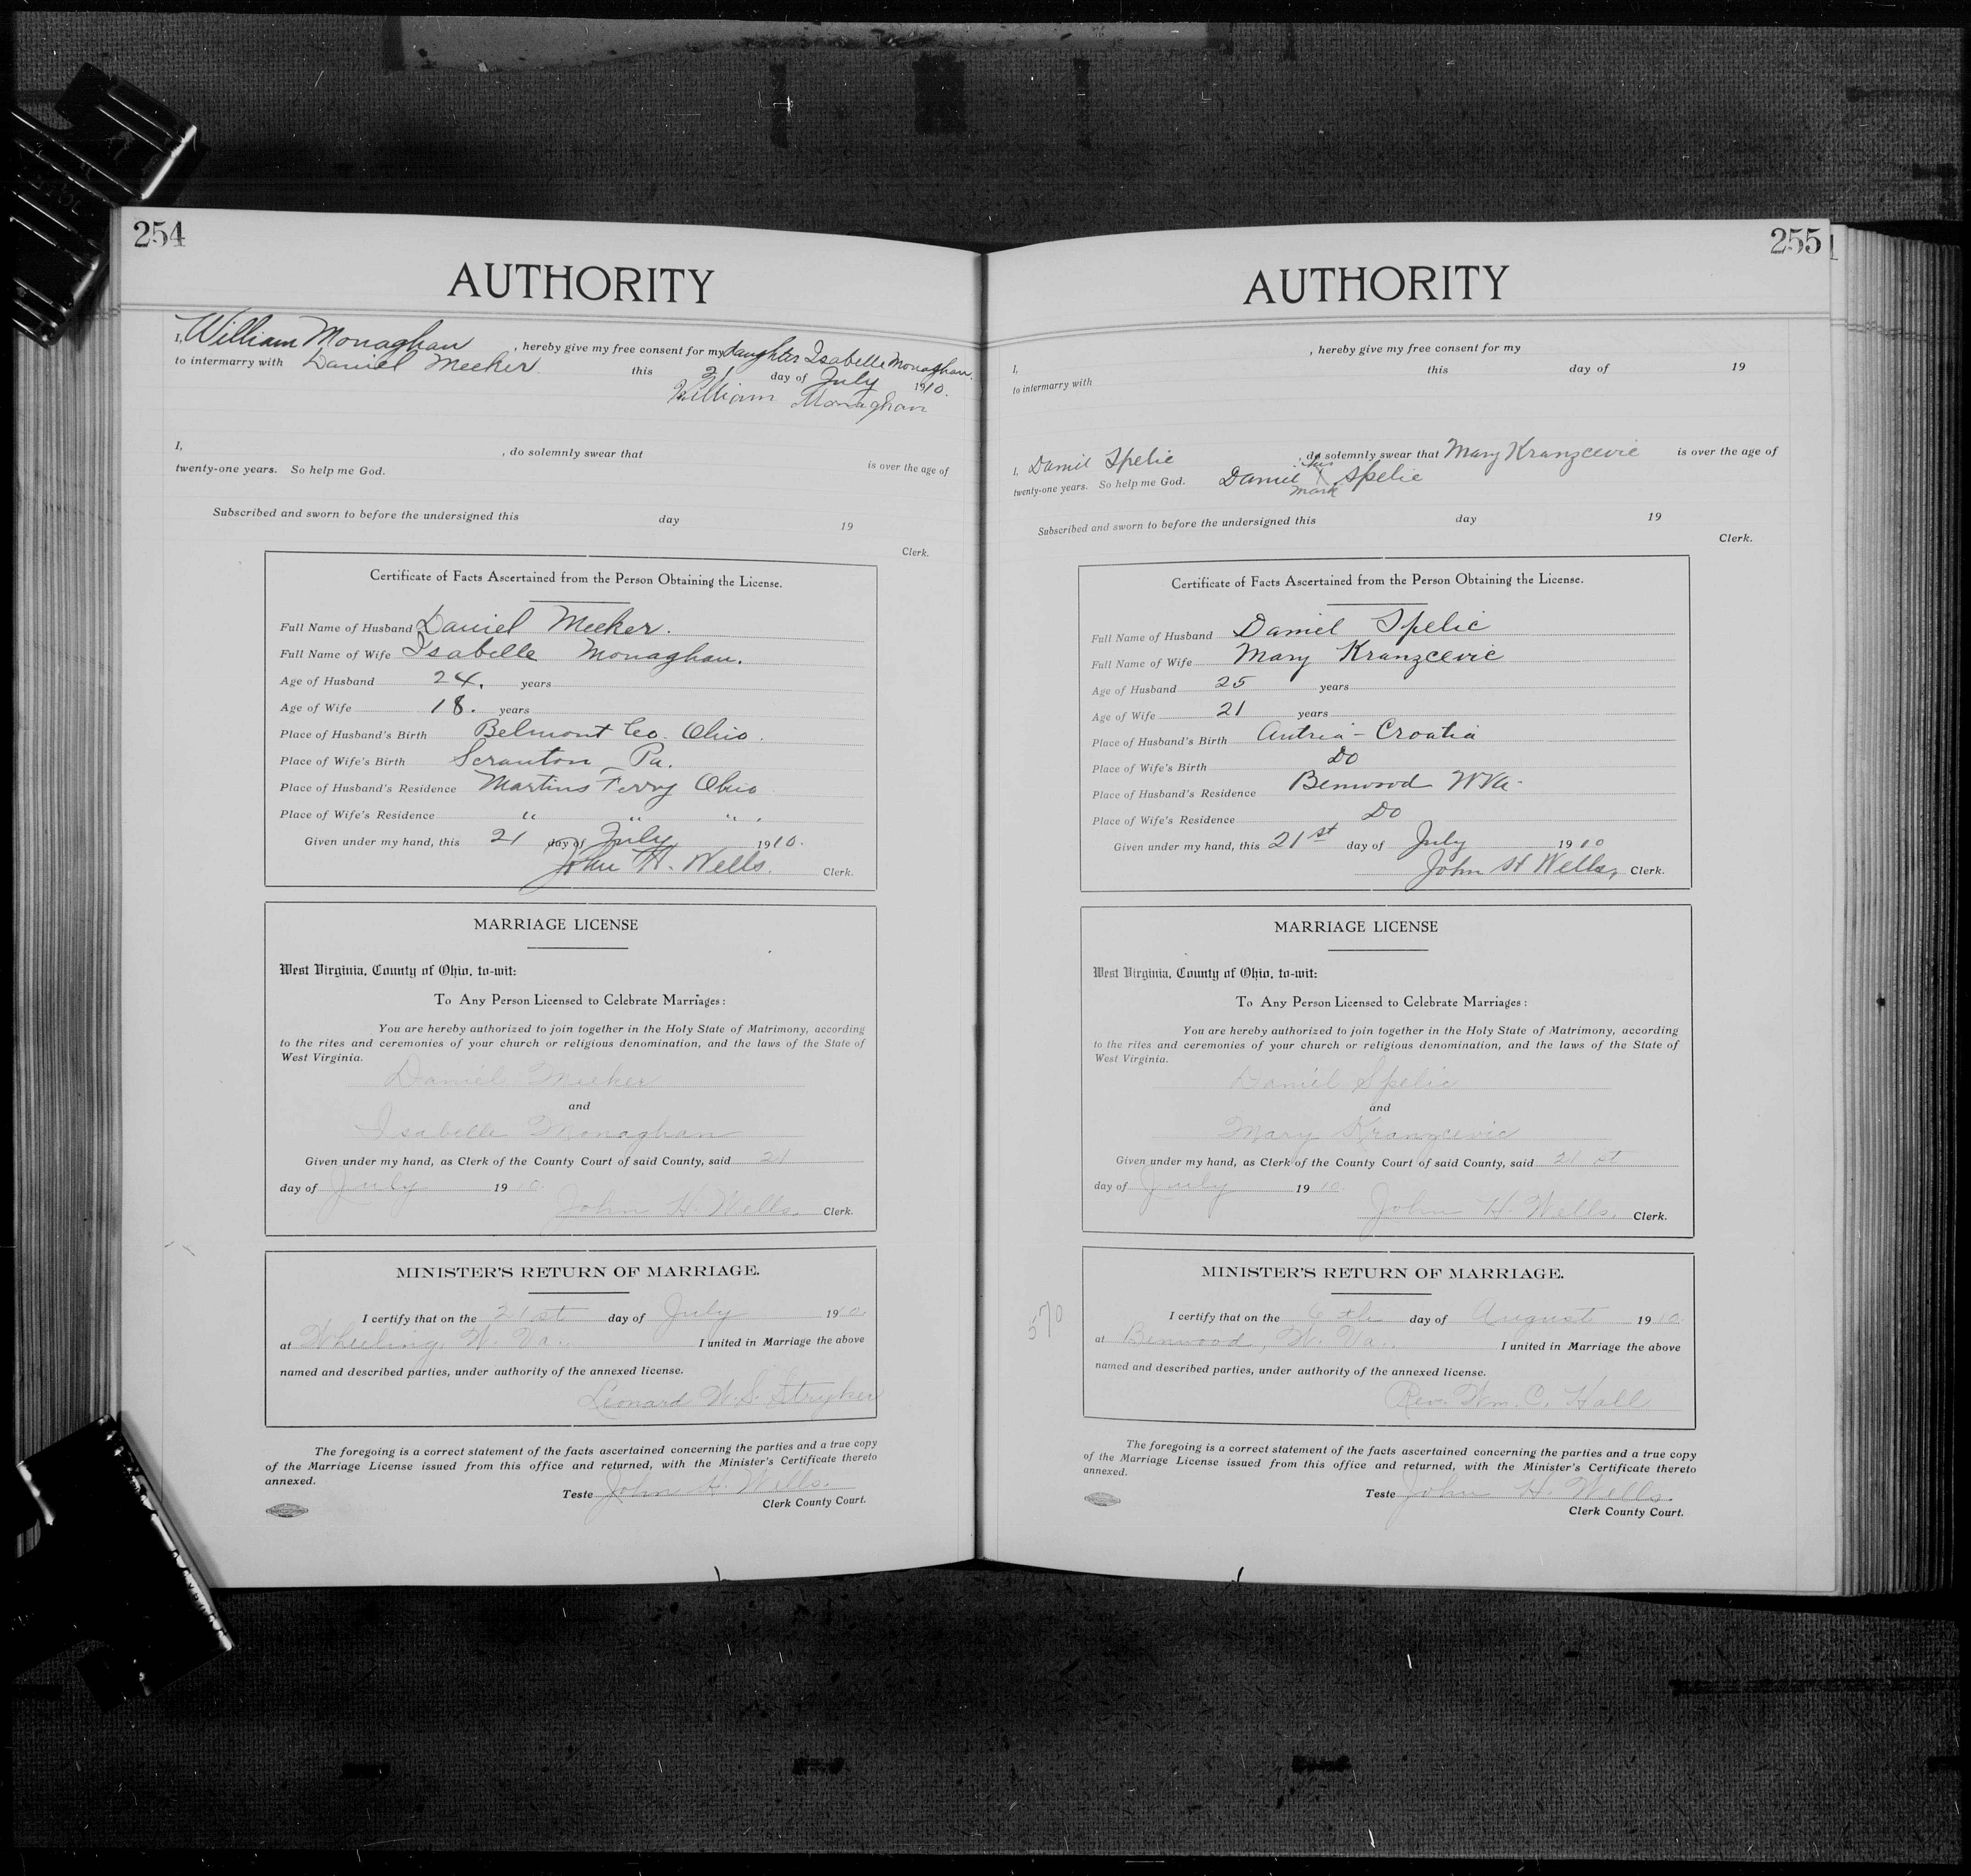 254
AUTHORITY
I, William Monaghan, hereby give my free consent for my daughter Isabelle Monaghan.
to intermarry with Daniel Meeker this 21 day of July 1910.
William Monaghan
I, , do solemnly swear that is over the age of
twenty-one years. So help me God.
Subscribed and sworn to before the undersigned this day 19
Clerk.
Certificate of Facts Ascertained from the Person Obtaining the License.
Full Name of Husband Daniel Meeker.
Full Name of Wife Isabelle Monaghan.
Age of Husband 24. years
Age of Wife 18. years
Place of Husband's Birth Belmont Co. Ohio.
Place of Wife's Birth Scranton Pa.
Place of Husband's Residence Martins Ferry Ohio
Place of Wife's Residence " " " .
Given under my hand, this 21 day of July 1910.
John H. Wells. Clerk.
MARRIAGE LICENSE
West Virginia, County of Ohio, to-wit:
To Any Person Licensed to Celebrate Marriages:
You are hereby authorized to join together in the Holy State of Matrimony, according
to the rites and ceremonies of your church or religious denomination, and the laws of the State of
West Virginia.
Daniel Meeker
and
Isabelle Monaghan
Given under my hand, as Clerk of the County Court of said County, said 21
day of July 1910.
John H. Wells. Clerk.
MINISTER'S RETURN OF MARRIAGE.
I certify that on the 21st day of July 1910.
at Wheeling, W. Va., I united in Marriage the above
named and described parties, under authority of the annexed license.
Leonard W. S. Stryker
The foregoing is a correct statement of the facts ascertained concerning the parties and a true copy
of the Marriage License issued from this office and returned, with the Minister's Certificate thereto
annexed.
Teste John H. Wells.
Clerk County Court.
255
AUTHORITY
I, , hereby give my free consent for my
to intermarry with this day of 19
I, Daniel Spelic, do solemnly swear that Mary Kranzcevic is over the age of
twenty-one years. So help me God. Daniel his X mark Spelic
Subscribed and sworn to before the undersigned this day 19
Clerk.
Certificate of Facts Ascertained from the Person Obtaining the License.
Full Name of Husband Daniel Spelic
Full Name of Wife Mary Kranzcevic
Age of Husband 25 years
Age of Wife 21 years
Place of Husband's Birth Autria - Croatia
Place of Wife's Birth Do
Place of Husband's Residence Benwood WVa.
Place of Wife's Residence Do
Given under my hand, this 21st day of July 1910
John H Wells, Clerk.
MARRIAGE LICENSE
West Virginia, County of Ohio, to-wit:
To Any Person Licensed to Celebrate Marriages:
You are hereby authorized to join together in the Holy State of Matrimony, according
to the rites and ceremonies of your church or religious denomination, and the laws of the State of
West Virginia.
Daniel Spelic
and
Mary Kranzcevic
Given under my hand, as Clerk of the County Court of said County, said 21 st
day of July 1910.
John H. Wells. Clerk.
MINISTER'S RETURN OF MARRIAGE.
570
I certify that on the 6 th day of August 1910.
at Benwood, W. Va., I united in Marriage the above
named and described parties, under authority of the annexed license.
Rev. Wm. C. Hall
The foregoing is a correct statement of the facts ascertained concerning the parties and a true copy
of the Marriage License issued from this office and returned, with the Minister's Certificate thereto
annexed.
Teste John H. Wells.
Clerk County Court.